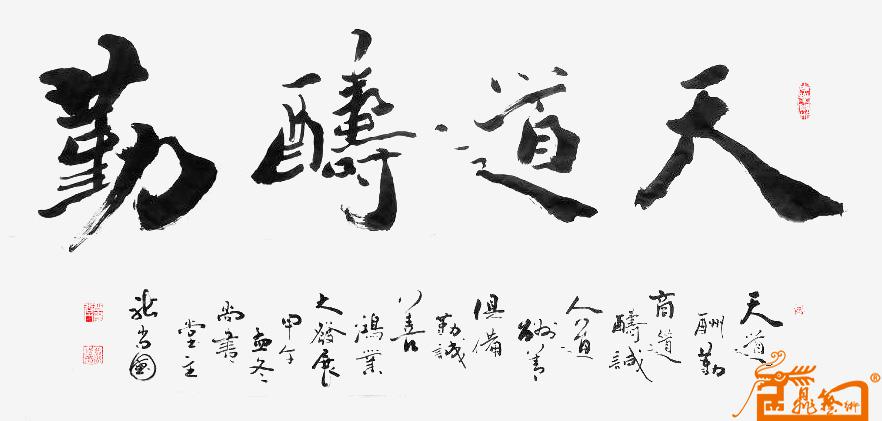 天道醻勤
天道
酬勤
商道
醻誠
人道
酬善
俱備
勤誠
善
鴻業
大發展
甲午
孟冬
尚書
堂主
藝術
®